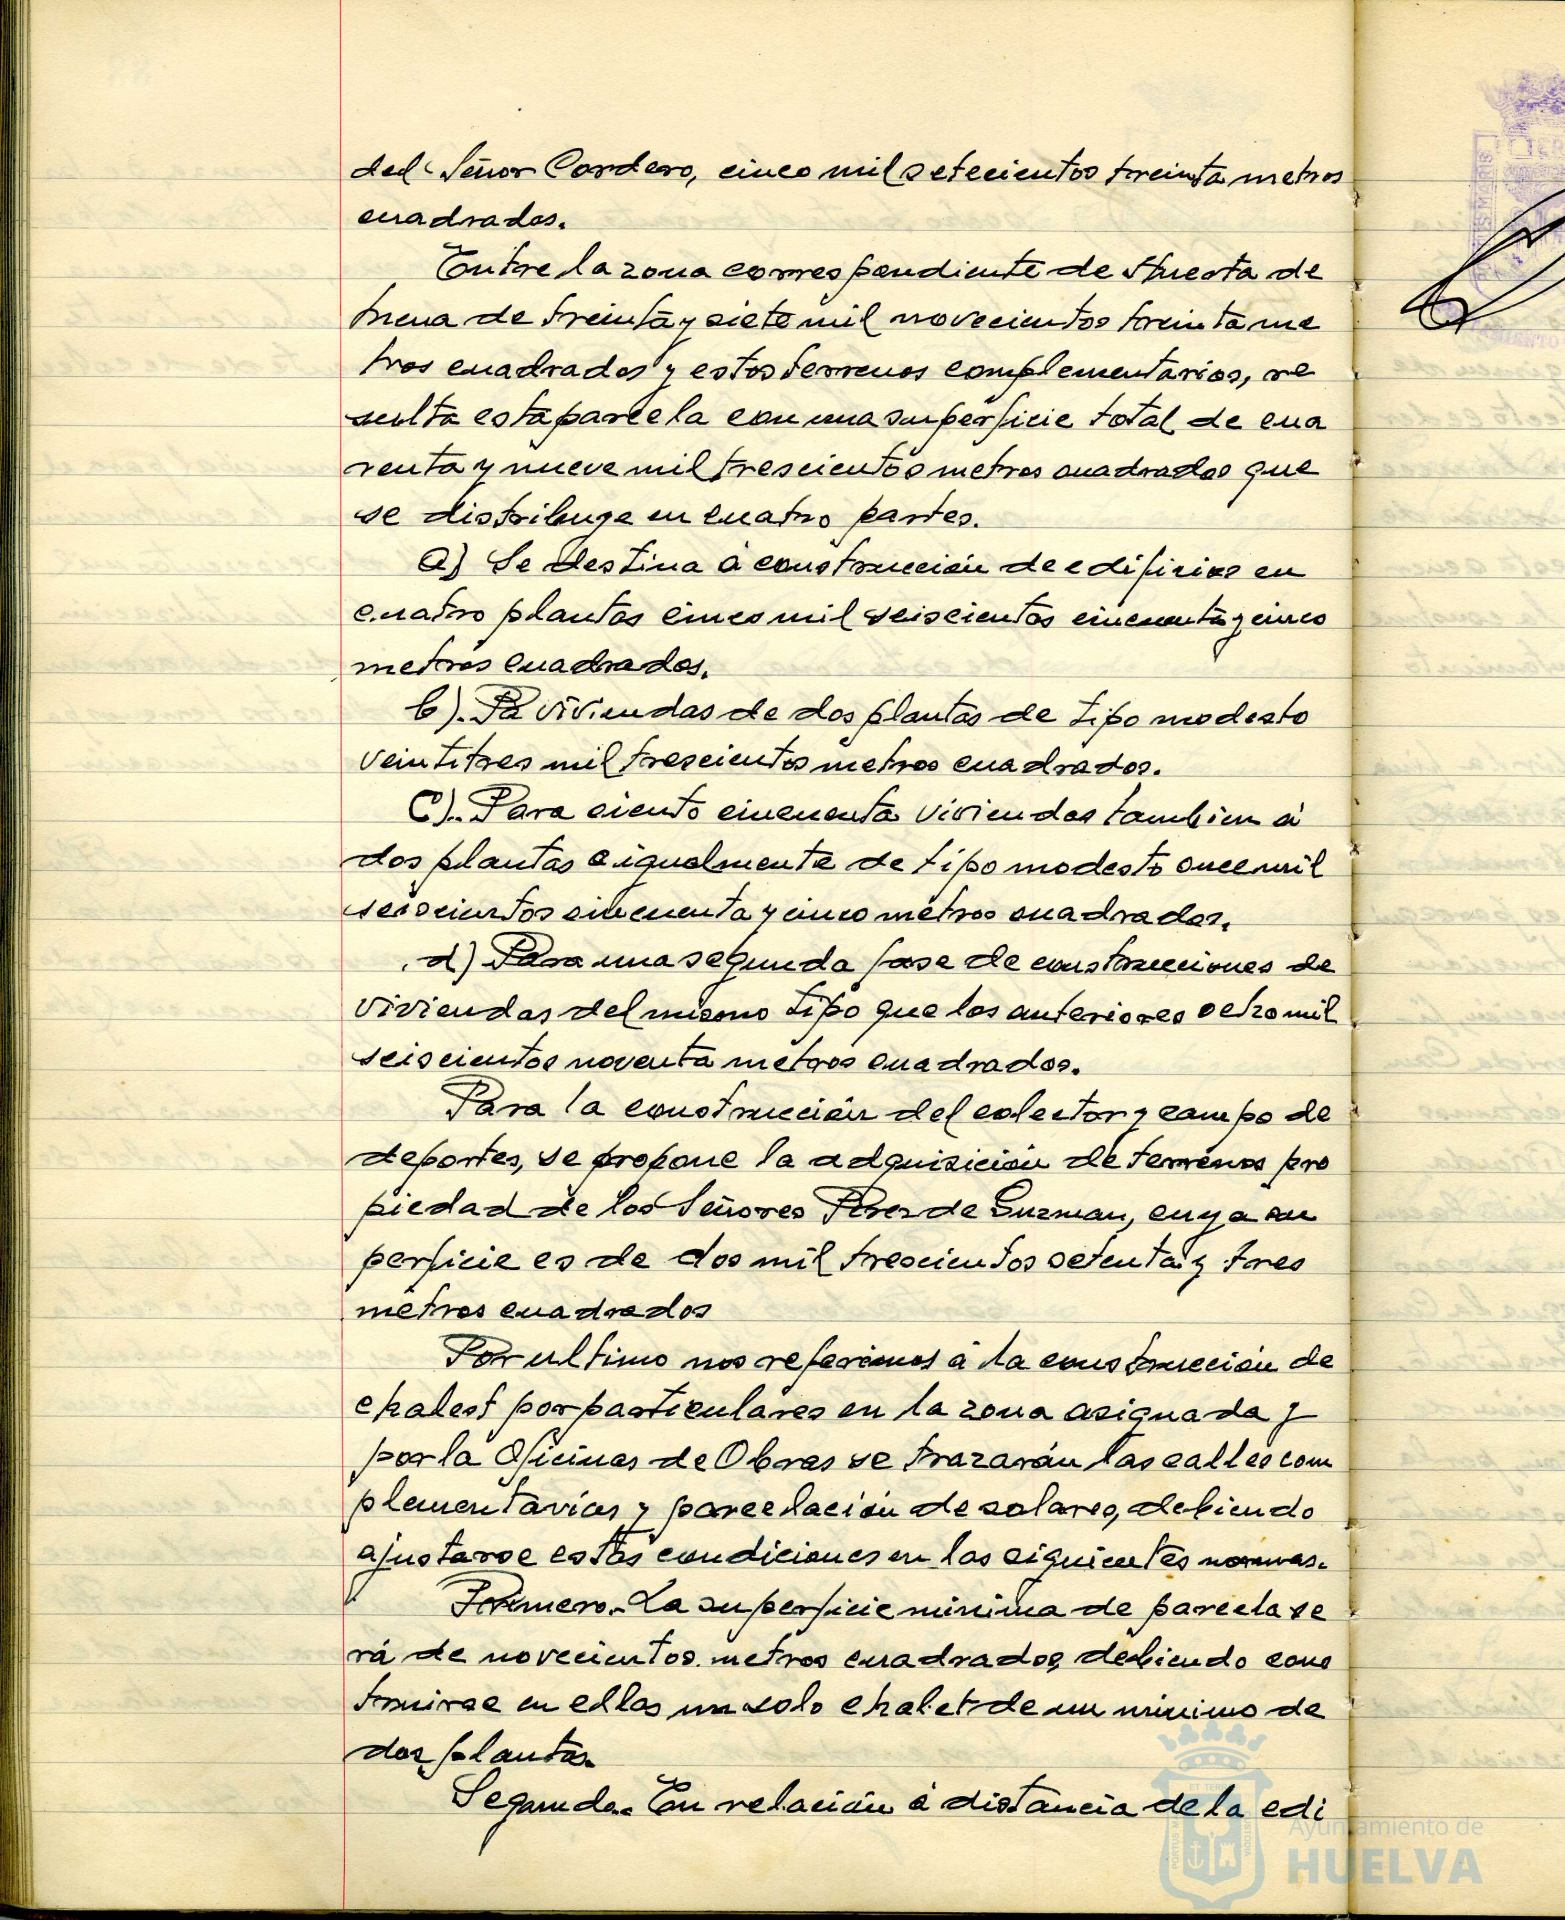 del Señor Cordero, cinco mil setecientos treinta metros
cuadrados.
Entre la zona correspondiente de Huerta de
Mena de treinta y siete mil novecientos treinta me
tros cuadrados y estos terrenos complementarios, re
sulta esta parcela con una superficie total de cua
renta y nueve mil trescientos metros cuadrados que
se distribuye en cuatro partes.
a) Se destina á construcción de edificios en
cuatro plantas cinco mil seiscientos cincuenta y cinco
metros cuadrados.
b).- Pa viviendas de dos plantas de tipo modesto
veintitres mil trescientos metros cuadrados.
C).- Para ciento cincuenta viviendas tambien á
dos plantas e igualmente de tipo modesto once mil
seiscientos cincuenta y cinco metros cuadrados.
d) Para una segunda fase de construcciones de
viviendas del mismo tipo que las anteriores ocho mil
seiscientos noventa metros cuadrados.
Para la construcción del colector y campo de
deportes, se propone la adquisición de terrenos pro
piedad de los Señores Perez de Guzman, cuya su
perficie es de dos mil trescientos setenta y tres
metros cuadrados
Por ultimo nos referimos á la construcción de
chalest por particulares en la zona asignada y
por la Oficinas de Obras se trazarán las calles com
plementarias y parcelación de solares, debiendo
ajustarse estas condiciones en las siguientes normas.
Primero.- La superficie minima de parcela se
rá de novecientos metros cuadrados debiendo cons
truirse en ellas un solo chalet de un minimo de
dos plantas.
Segundo.- En relación á distancia de la edi
Ayuntamiento de
HUELVA